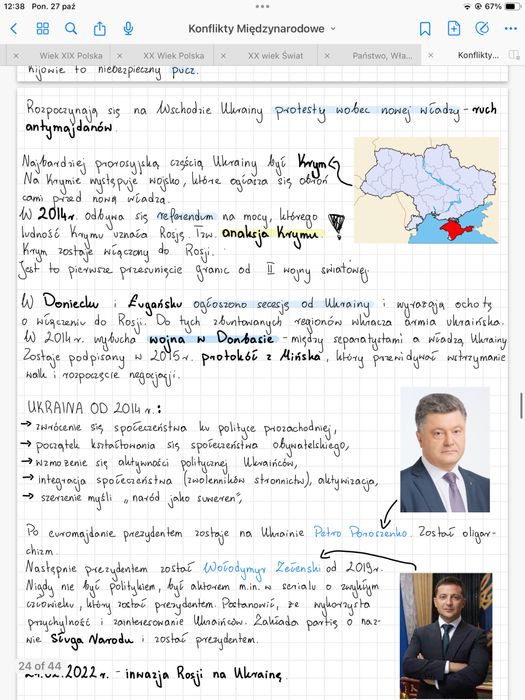 12:38 Pon. 27 paź
67%
Konflikty Międzynarodowe
Wiek XIX Polska
XX Wiek Polska
XX wiek Świat
Państwo, Wła...
Konflikty...
Kijowie to niebezpieczny pucz.
Rozpoczynają się na Wschodzie Ukrainy protesty wobec nowej władzy - ruch
antymajdanów.
Najbardziej prorosyjską częścią Ukrainy był Krym
Na Krymie występuje wojsko, które ogłasza się obroń
cami przed nową władzą.
W 2014r. odbywa się referendum na mocy, którego
ludność Krymu uznała Rosję. Tzw. aneksja Krymu.
Krym zostaje włączony do Rosji.
Jest to pierwsze przesunięcie granic od II wojny światowej.
W Doniecku i Ługańsku ogłoszono secesję od Ukrainy i wyrażają ochotę
o włączeniu do Rosji. Do tych zbuntowanych regionów wkracza armia ukraińska.
W 2014r. wybucha wojna w Donbasie - między separatystami a władzą Ukrainy
Zostaje podpisany w 2015r. protokół z Mińska, który przewidywać wstrzymanie
walk i rozpoczęcie negocjacji.
UKRAINA OD 2014r.:
→ zwrócenie się społeczeństwa ku polityce prozachodniej,
→ początek kształtowania się społeczeństwa obywatelskiego,
→ wzmożenie się aktywności politycznej Ukraińców,
→ integracja społeczeństwa (zwolenników stronnictw), aktywizacja,
→ szerzenie myśli „naród jako suweren",
Po euromajdanie prezydentem zostaje na Ukrainie Petro Poroszenko. Został oligar-
chizm.
Następnie prezydentem został Wołodymyr Zełenski od 2019r.
Nigdy nie być politykiem, być aktorem m.in. w serialu o zwykłym
człowieku, który został prezydentem. Postanowić, że wykorzysta
przychylność i zainteresowanie Ukraińców. Zakłada partię o naz-
wie Sługa Narodu i został prezydentem.
24 of 44
.02.2022r. - inwazja Rosji na Ukrainę